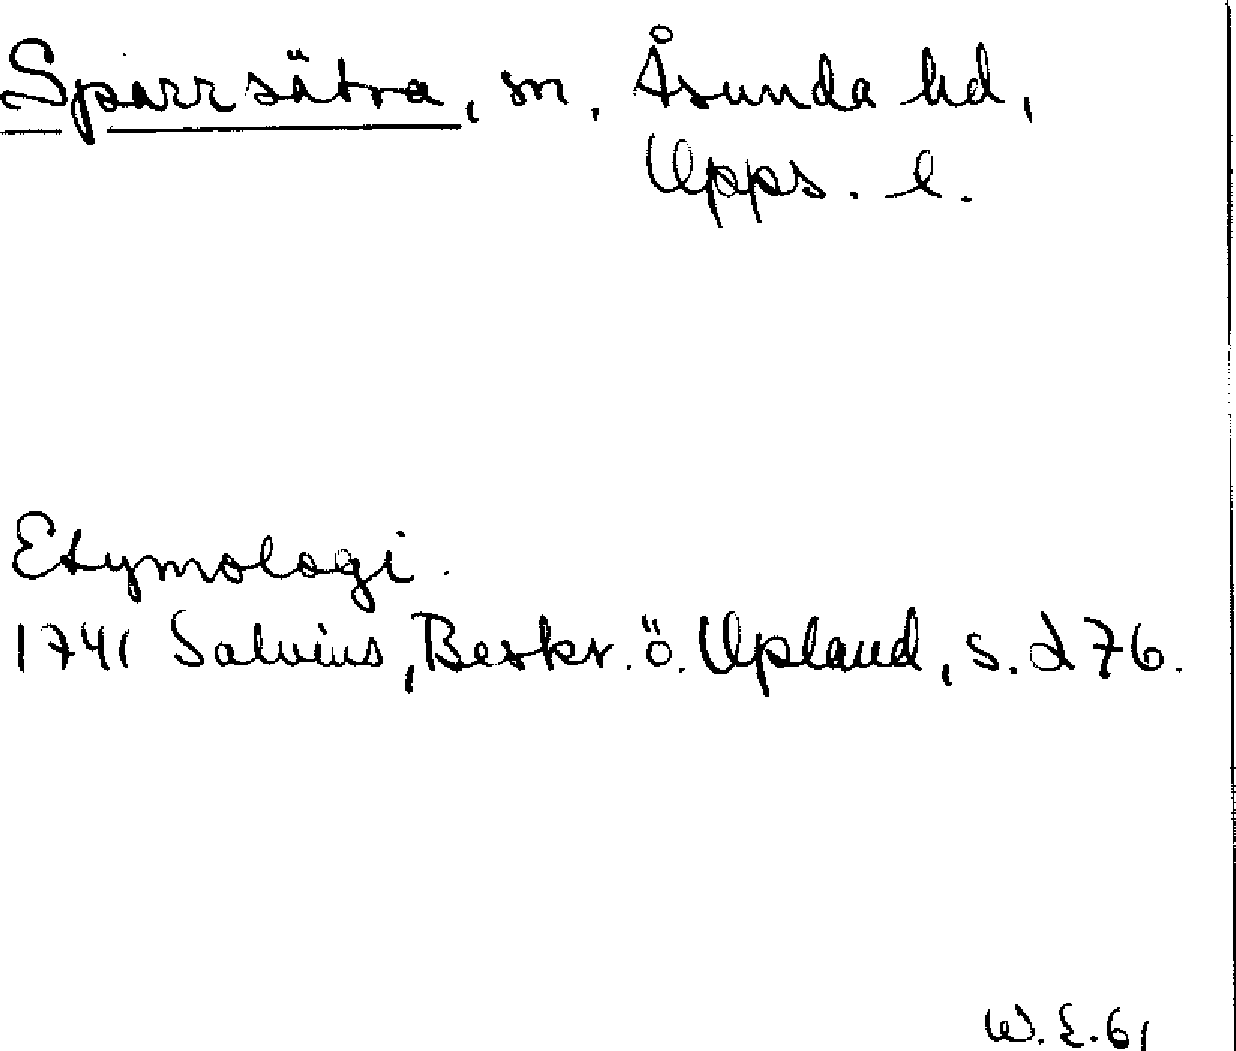 Sparrsätra, sn, Åsunda hd,
Upps. l.
Etymologi.
1741 Salvius, Beskr. ö. Upland, s. 276.
W. E. 61